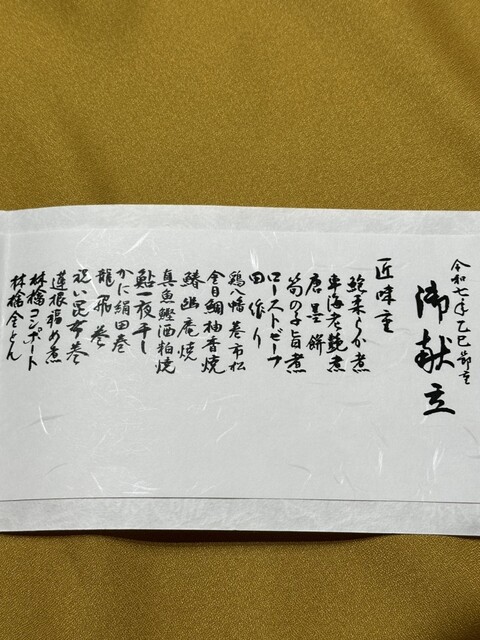 令和七年乙巳節重
御献立
匠味重
鮑柔らか煮
車海老艶煮
唐墨餅
筍の子旨煮
ローストビーフ
田作り
鶏八幡巻市松
金目鯛柚香焼
鰆幽庵焼
真魚鰹酒粕焼
鮎一夜干し
かに絹田巻
龍飛巻
祝い昆布巻
蓮根福め煮
林檎コンポート
林檎金とん